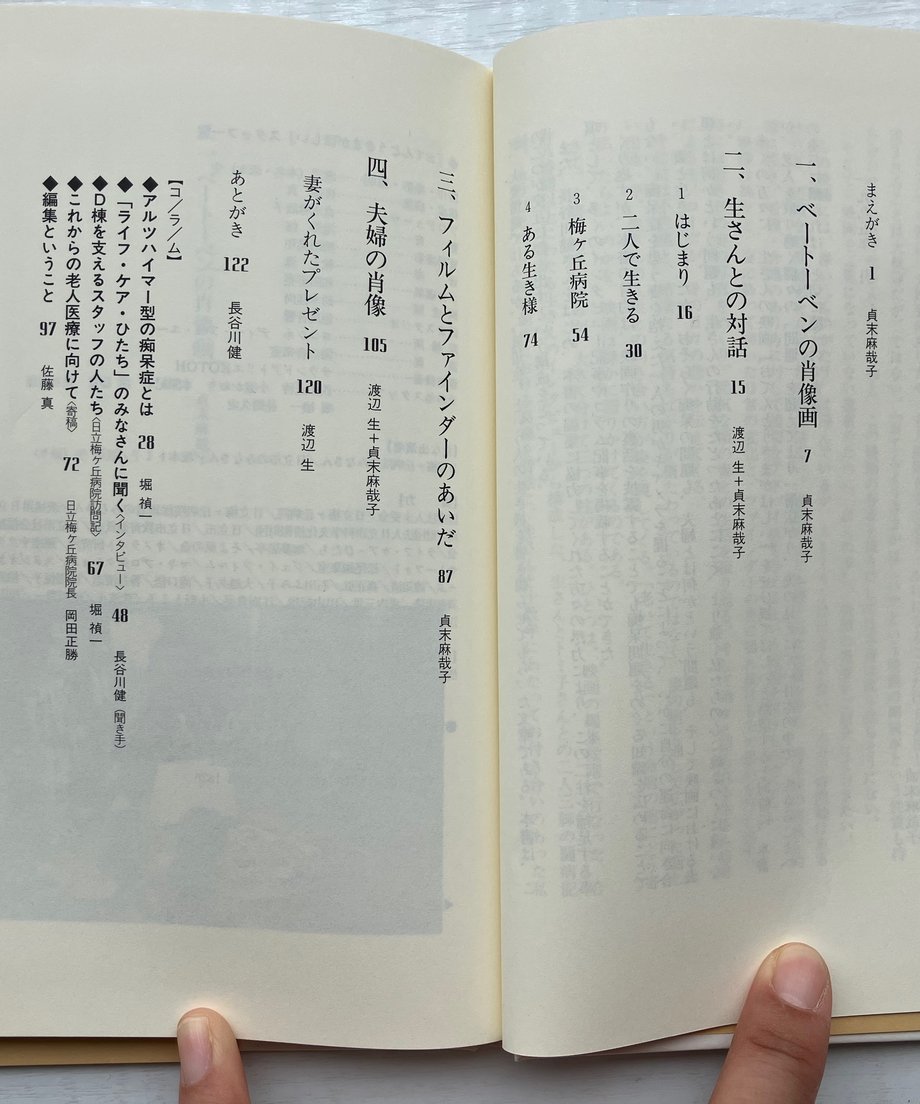 まえがき 1 貞末麻哉子
一、ベートーベンの肖像画 7 貞末麻哉子
二、生さんとの対話 15 渡辺 生＋貞末麻哉子
1 はじまり 16
2 二人で生きる 30
3 梅ヶ丘病院 54
4 ある生き様 74
三、フィルムとファインダーのあいだ 87 貞末麻哉子
四、夫婦の肖像 105 渡辺 生＋貞末麻哉子
妻がくれたプレゼント 120 渡辺 生
あとがき 122 長谷川健
【コ／ラ／ム】
◆アルツハイマー型の痴呆症とは 28 堀 禎一
◆「ライフ・ケア・ひたち」のみなさんに聞く〈インタビュー〉 48 長谷川健（聞き手）
◆D棟を支えるスタッフの人たち〈日立梅ヶ丘病院訪問記〉 67 堀 禎一
◆これからの老人医療に向けて〈寄稿〉 72 日立梅ヶ丘病院院長 岡田正勝
◆編集ということ 97 佐藤 真